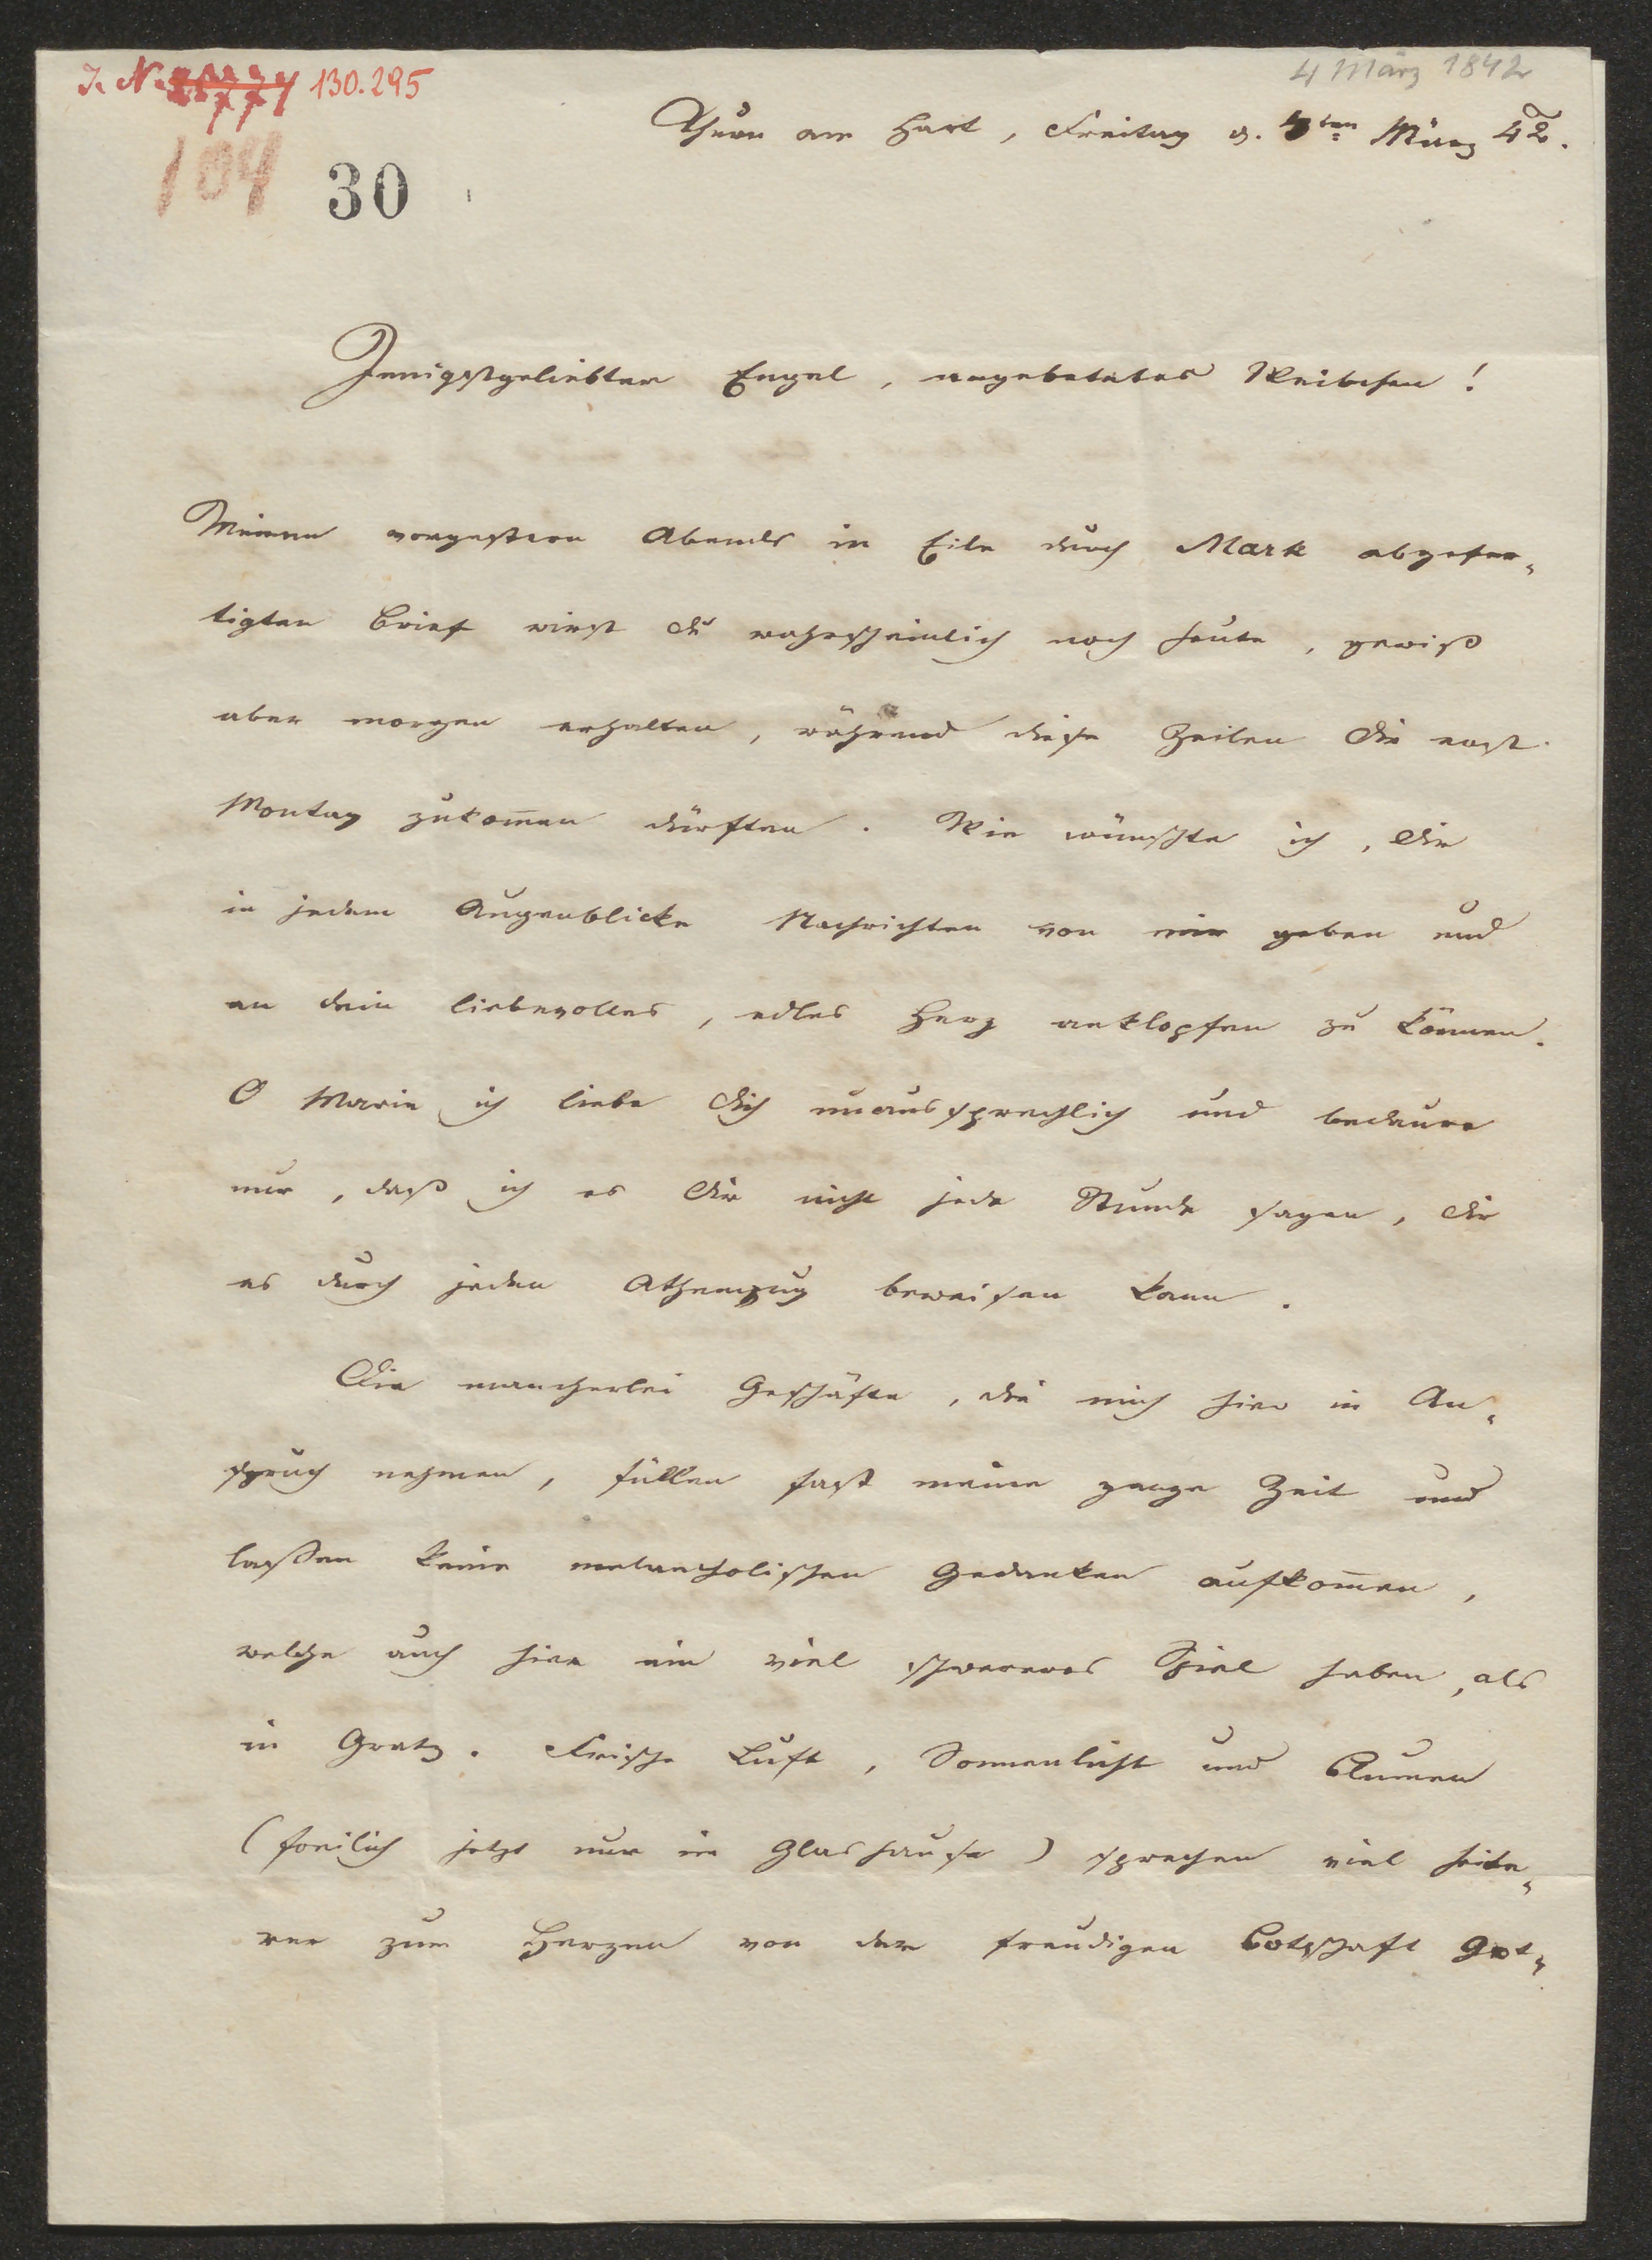 I. N. 130.295
4 März 1842
104
30
Thurn am Hart, Freitag d. 4ten März 42.
Innigstgeliebter Engel, angebetetes Weibchen!
Meinen vorgestern Abends in Eile durch Mark abgefer-
tigten Brief wirst du wahrscheinlich noch heute, gewiß
aber morgen erhalten, während diese Zeilen dir erst
Montag zukom̄en dürften. Wie wünschte ich, dir
in jedem Augenblicke Nachrichten von mir geben und
an dein liebevolles, edles Herz anklopfen zu können.
O Marie ich liebe dich unaussprechlich und bedaure
nur, daß ich es dir nicht jede Stunde sagen, dir
es durch jeden Athemzug beweisen kann.
Die mancherlei Geschäfte, die mich hier in An-
spruch nehmen, füllen fast meine ganze Zeit und
laßen keine melancholischen Gedanken aufkom̄en,
welche auch hier ein viel schwereres Spiel haben, als
in Gratz. Frische Luft, Sonnenlicht und Blumen
(freilich jetzt nur im Glashause) sprechen viel heite-
rer zum Herzen von der freudigen Botschaft Got-